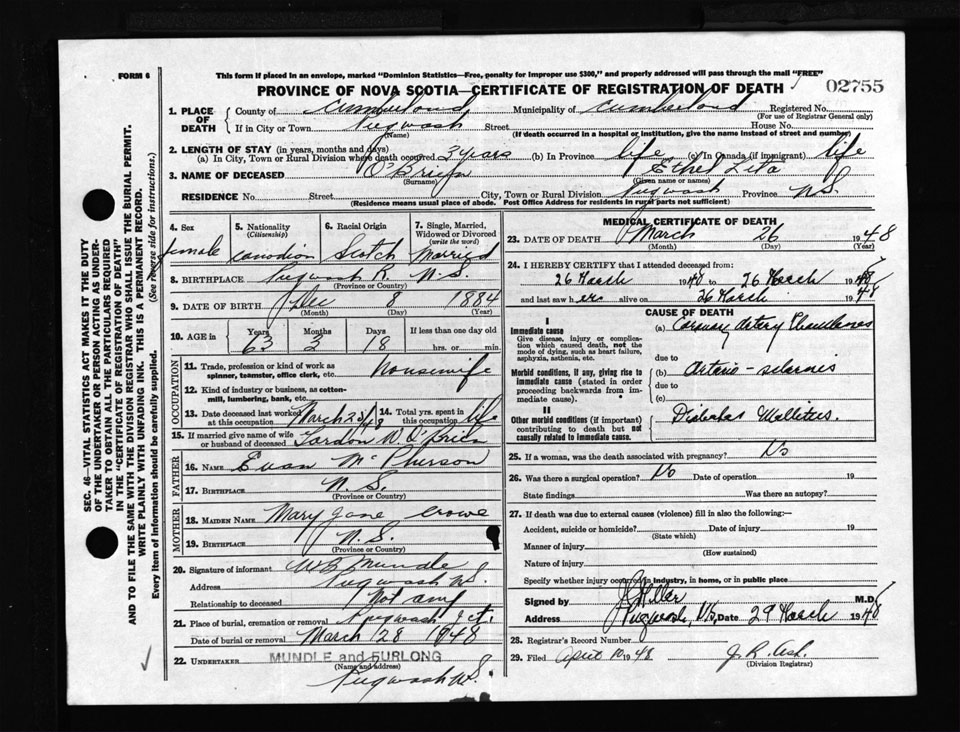 FORM 6
This form if placed in an envelope, marked "Dominion Statistics—Free, penalty for improper use $300," and properly addressed will pass through the mail "FREE"
PROVINCE OF NOVA SCOTIA—CERTIFICATE OF REGISTRATION OF DEATH 02755
1. PLACE OF DEATH County of Cumberland Municipality of Cumberland Registered No.
(For use of Registrar General only)
If in City or Town Pugwash Street House No.
(Name) (If death occurred in a hospital or institution, give name instead of street and number)
2. LENGTH OF STAY (in years, months and days)
(a) In City, Town or Rural Division where death occurred 3 years (b) In Province life (c) In Canada (if immigrant) life
3. NAME OF DECEASED O'Brien Ethel Leta
(Surname) (Given name or names)
RESIDENCE No. Street City, Town or Rural Division Pugwash Province N.S.
(Residence means usual place of abode. Post Office Address for residents in rural parts not sufficient)
4. Sex 5. Nationality (Citizenship) 6. Racial Origin 7. Single, Married, Widowed or Divorced (write the word)
female Canadian Scotch Married
8. BIRTHPLACE Pugwash R. N.S.
(Province or Country)
9. DATE OF BIRTH Dec 8 1884
(Month) (Day) (Year)
10. AGE in Years Months Days If less than one day old
63 3 18 hrs. or min.
OCCUPATION
11. Trade, profession or kind of work as spinner, teamster, office clerk, etc. Housewife
12. Kind of industry or business, as cotten-mill, lumbering, bank, etc.
13. Date deceased last worked at this occupation March 25/48 14. Total yrs. spent in this occupation life
15. If married give name of wife or husband of deceased Gordon W. O'Brien
FATHER
16. NAME Evan McPherson
17. BIRTHPLACE N.S.
(Province or Country)
MOTHER
18. MAIDEN NAME Mary Jane Crowe
19. BIRTHPLACE N.S.
(Province or Country)
20. Signature of informant W B Mundle
Address Pugwash N.S.
Relationship to deceased Not any
21. Place of burial, cremation or removal Pugwash
Date of burial or removal March 28 1948
22. UNDERTAKER MUNDLE and FURLONG
(Name and address)
Pugwash N.S.
MEDICAL CERTIFICATE OF DEATH
23. DATE OF DEATH March 26 1948
(Month) (Day) (Year)
24. I HEREBY CERTIFY that I attended deceased from:
26 March 1948 to 26 March 1948
and last saw her alive on 26 March 1948
CAUSE OF DEATH
I
Immediate cause
Give disease, injury or complication which caused death, not the mode of dying, such as heart failure, asphyxia, asthenia, etc.
(a) Coronary Artery
due to
Morbid conditions, if any, giving rise to immediate cause (stated in order proceeding backwards from immediate cause).
(b) Arterio-
due to
(c)
II
Other morbid conditions (if important) contributing to death but not causally related to immediate cause.
Diabetes Mellitus
25. If a woman, was the death associated with pregnancy? No
26. Was there a surgical operation? No Date of operation 19
State findings Was there an autopsy?
27. If death was due to external causes (violence) fill in also the following:—
Accident, suicide or homicide? Date of injury 19
(State which)
Manner of injury
(How sustained)
Nature of injury
Specify whether injury occurred in industry, in home, or in public place
Signed by Hiller M.D.
Address Pugwash, N.S. Date 29 March 1948
28. Registrar's Record Number
29. Filed April 10 1948 J. R. Ash.
(Division Registrar)
SEC. 46—VITAL STATISTICS ACT MAKES IT THE DUTY
OF THE UNDERTAKER OR PERSON ACTING AS UNDER-
TAKER TO OBTAIN ALL THE PARTICULARS REQUIRED
IN THE "CERTIFICATE OF REGISTRATION OF DEATH"
AND TO FILE THE SAME WITH THE DIVISION REGISTRAR WHO SHALL ISSUE THE BURIAL PERMIT.
WRITE PLAINLY WITH UNFADING INK. THIS IS A PERMANENT RECORD.
Every item of information should be carefully supplied. (See reverse side for instructions.)